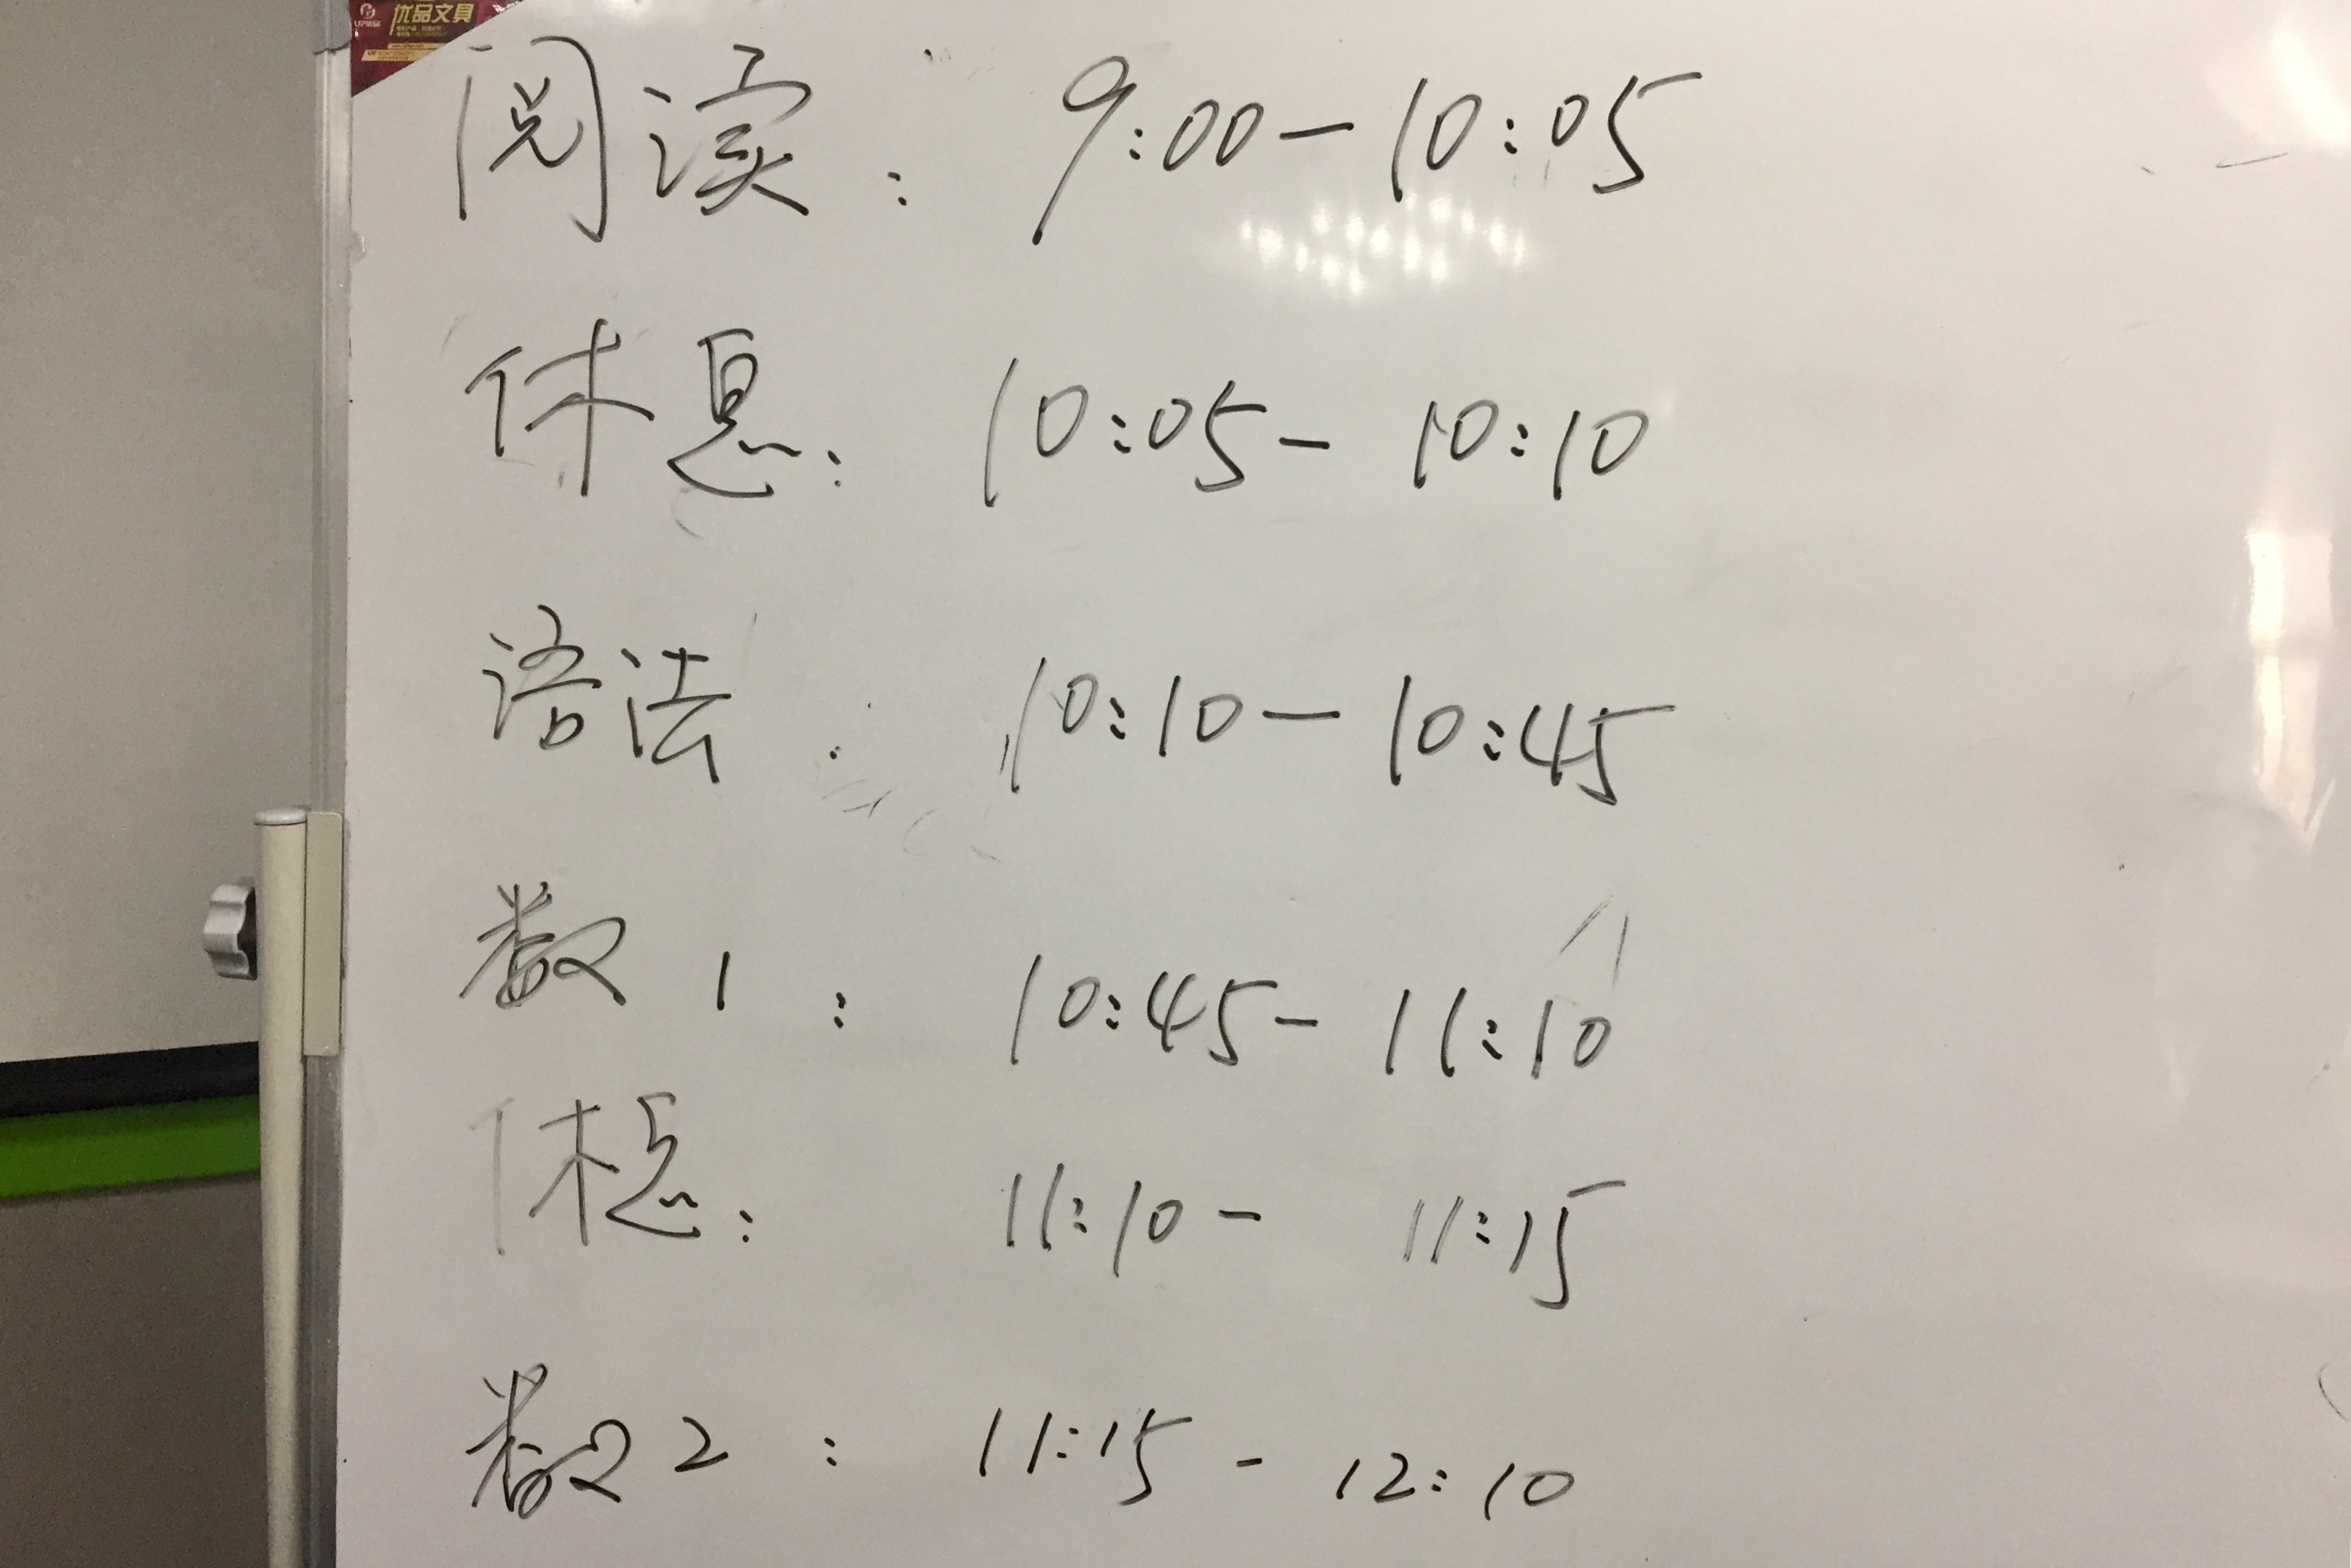 优品文具
阅读： 9:00—10:05
休息： 10:05- 10:10
语法： 10:10—10:45
数1： 10:45- 11:10
休息： 11:10- 11:15
数2： 11:15 - 12:10